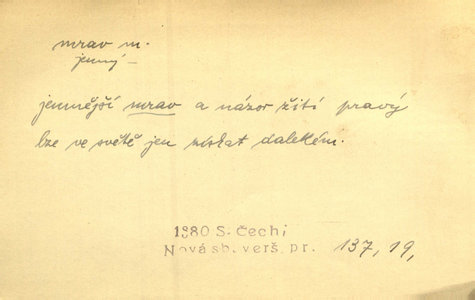 mrav m.
jemný –
jemnější mrav a názor žití pravý
lze ve světě jen získat dalekém.
1880 S. Čech,
Nová sb. verš. pr. 137, 19,